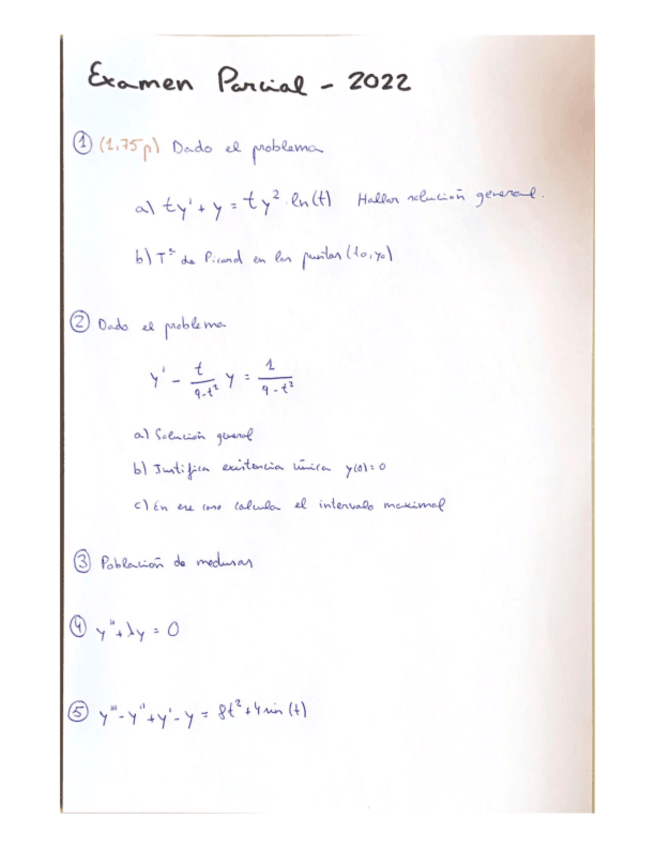 Examen Parcial - 2022
① (1.75p) Dado el problema
a) ty' + y = ty² ln(t) Hallar solución general.
b) Tª de Picard en los puntos (to, yo)
② Dado el problema
y' - t/(9-t²) y = 1/(9-t²)
a) Solución general
b) Justifica existencia única y(0)=0
c) En ese caso calcula el intervalo maximal
③ Población de medusas
④ y'' + λy = 0
⑤ y''' - y'' + y' - y = 8t² + 4 sin(t)